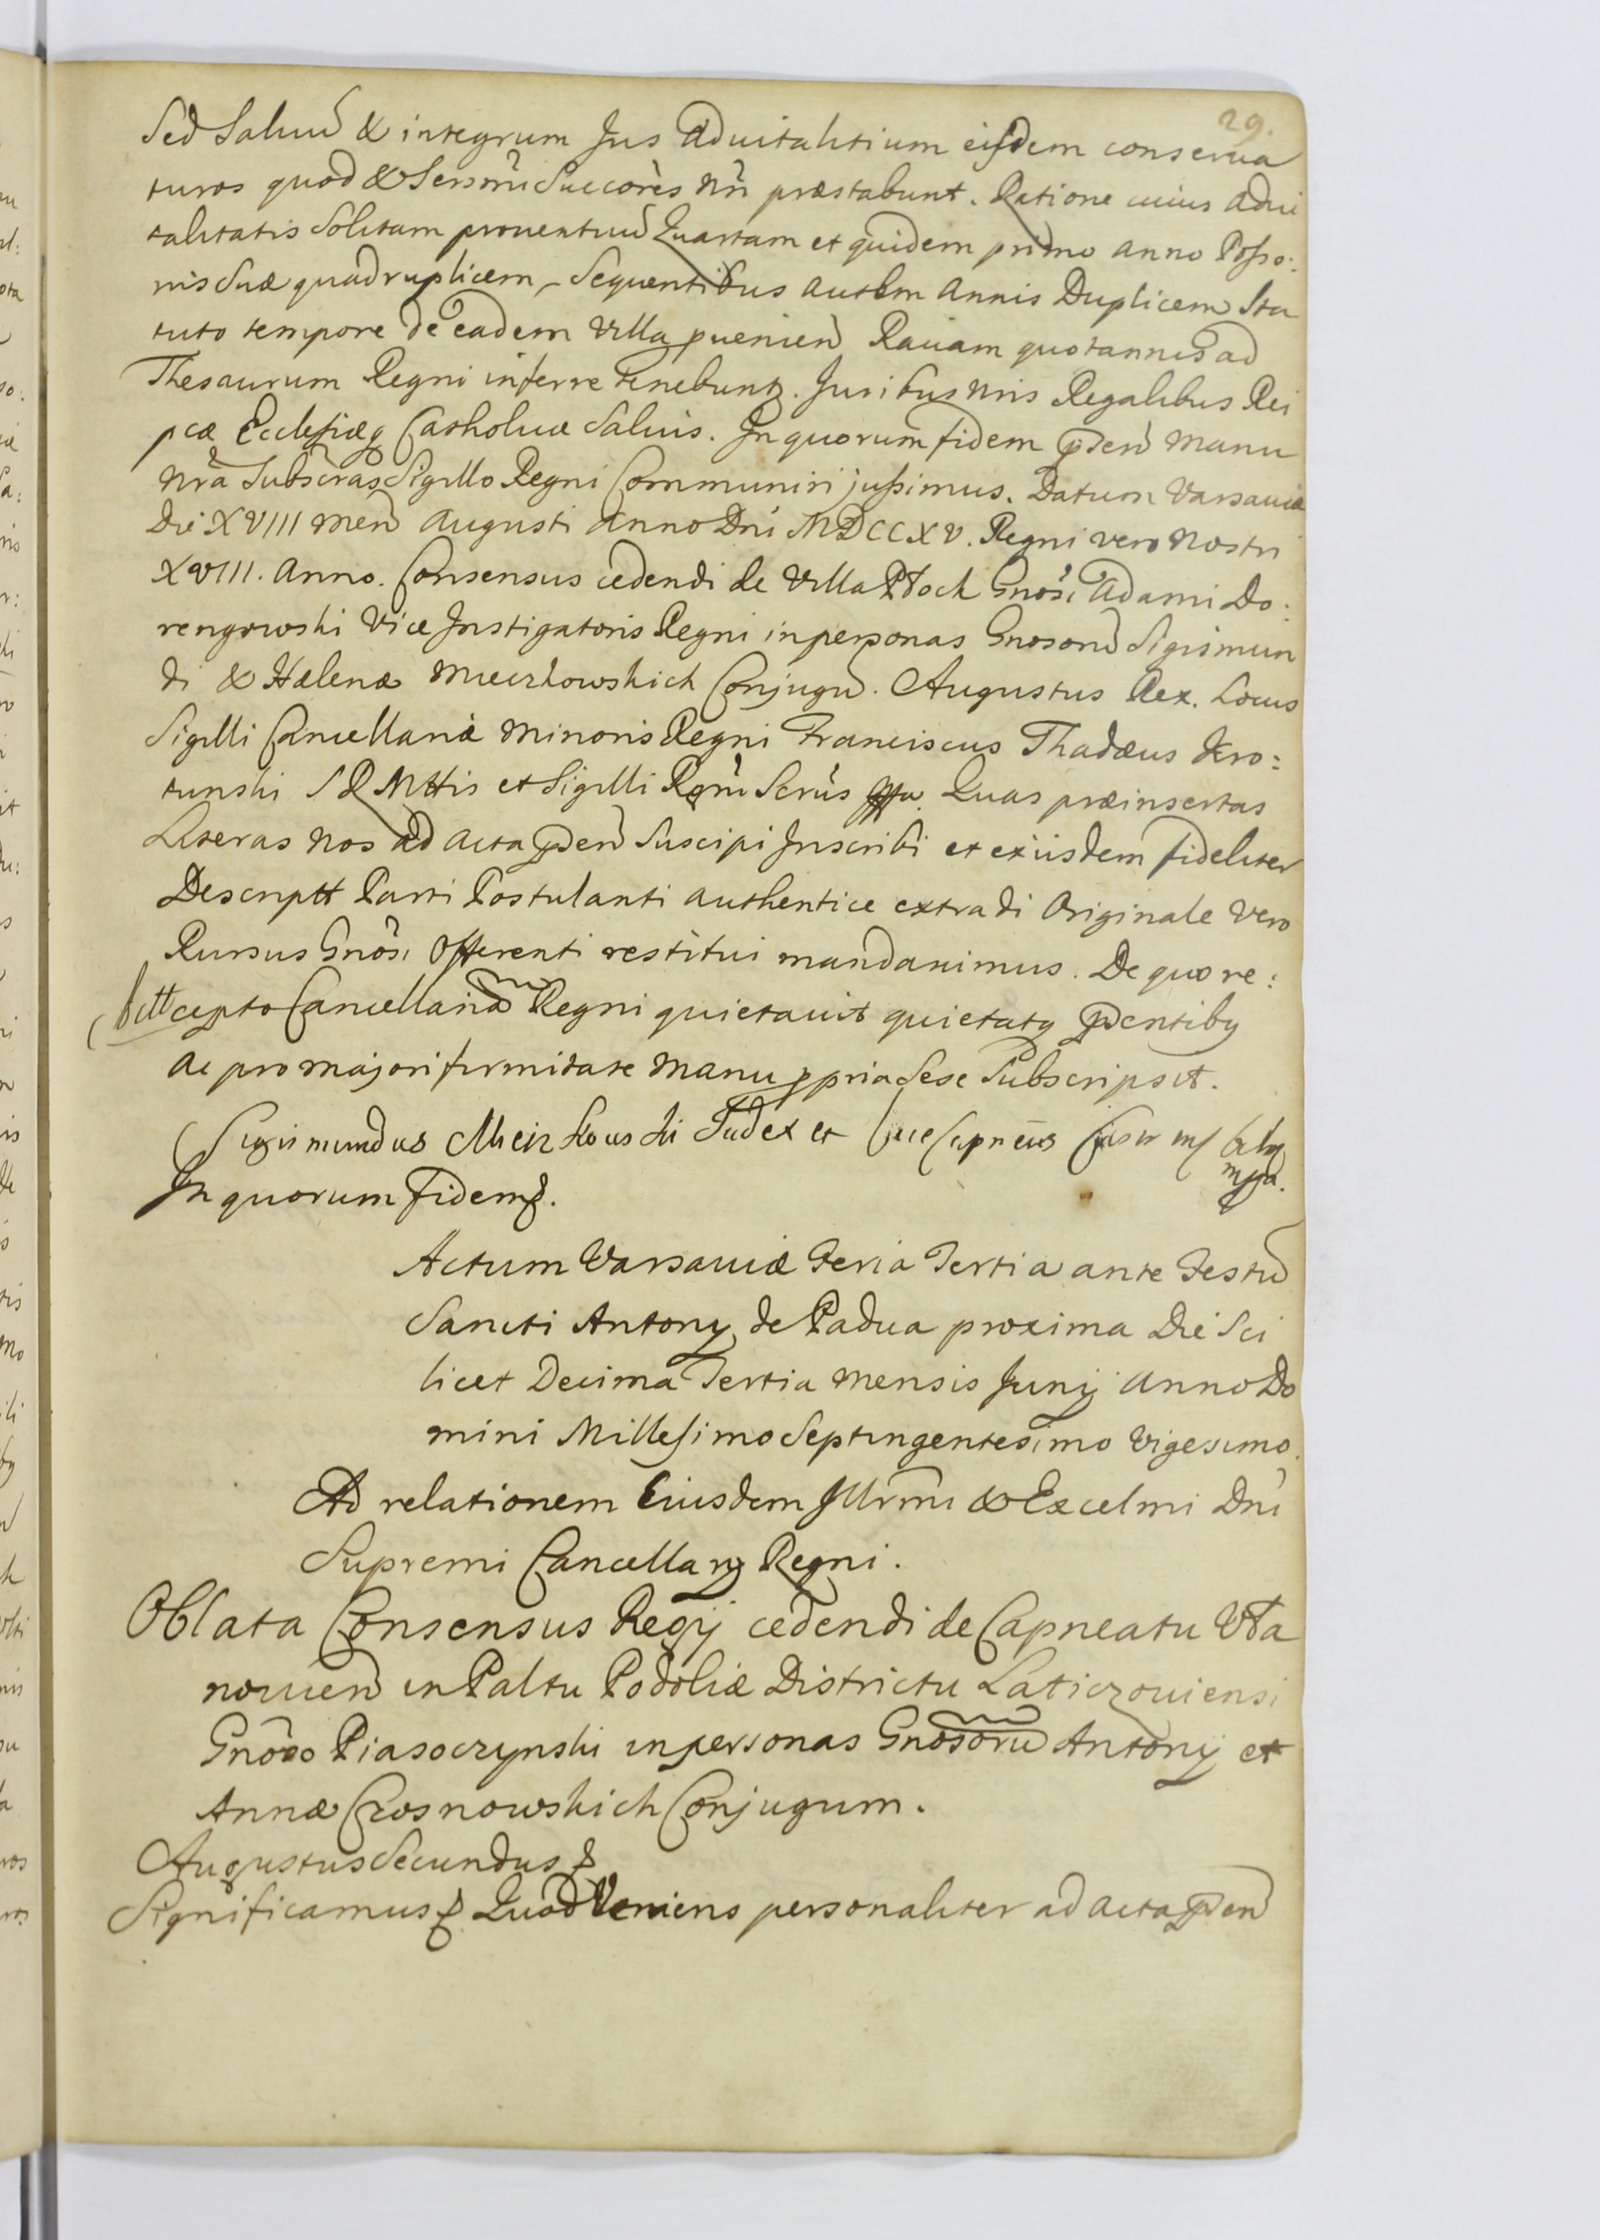 29.
Sed Salvũ & integrum Jus Advitalitium eisdem conserva
turos quod & Sersm̃i Succorẽs Nr̃i præstabunt. Ratione cuius Advi
talitatis Solitam proventuũ Quartam et quidem primo anno Posso:
nis Suæ quadruplicem, Sequentibus autem Annis Duplicem Sta
tuto tempore de eadem Villa pveniẽn Ravam quotannis ad
Thesaurum Regni inferre tenebuntr. Juribus Nris Regalibus Rei
pcæ Ecclesiæq Catholicæ Salvis. In quorum fidem pñtẽn Manu
Nr̃a Subscras Sigillo Regni Communiri jussimus. Datum Varsaviæ
Die XVIII Men̄ Augusti Anno Dñi MDCCXV. Regni vero Nostri
XVIII. Anno. Consensus cedendi de Villa Płock Gnõsi Adami Do:
rengowski Vice Instigatoris Regni in personas Gnosorũ Sigismun
di & Helenæ Mieczkowskich Conjugũ. Augustus Rex. Locus
Sigilli Cancellariæ Minoris Regni Franciscus Thadæus Kro:
tunski S R Mttis et Sigilli Rgni Scrũs Quas præinsertas
Literas Nos ad Acta pñtẽn Suscipi Inscribi et ex iisdem fideliter
Descriptt Parti Postulanti authentice extradi Originale Vero
Rursus Gnõsi Offerenti restitui mandavimus. De quo re:
cepto Cancellariã Regni quietavit quietatq pñtentibq
Ac pro majori firmitate Manu ppria Sese Subscripsit.
Sigismundus Mieczkowski Judex et
mppa.
In quorum fidem &.
Actum Varsaviæ Feria Tertia ante Festũ
Sancti Antonij de Padua proxima Die Sci
licet Decima Tertia Mensis Junij Anno Do
mini Millesimo Septingentesimo Vigesimo.
Ad relationem Eiusdem Illrm̃i & Excelmi Dñi
Supremi Cancellarij Regni.
Oblata Consensus Regij cedendi de Capneatu Uła
novien̄ in Paltu Podoliæ Districtu Laticzoviensi
Gnõso Piasoczynski in personas Gnõsorũ Antonij et
Annæ Crosnowskich Conjugum.
Augustus Secundus &
Significamus & Quod Veniens personaliter ad Acta pñtẽn